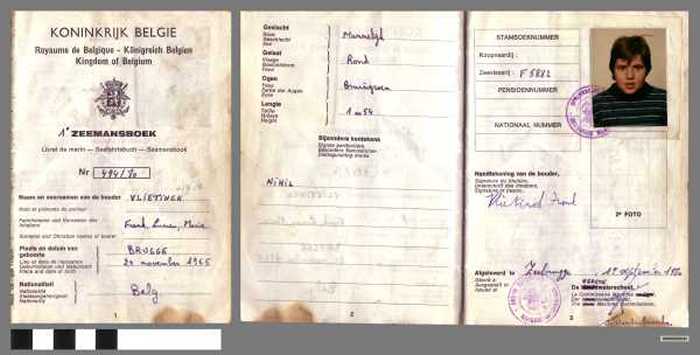 KONINKRIJK BELGIE
Royaume de Belgique - Königreich Belgien
Kingdom of Belgium
1° ZEEMANSBOEK
Livret de marin — Seefahrtsbuch — Seamansbook
Nr 494/80
Naam en voornamen van de houder VLIETINCK
Nom et prénoms du porteur
Familienname und Vornamen des
Inhabers
Surname and Christian names of bearer
Plaats en datum van
geboorte
BRUGGE
Lieu et date de naissance
Geburtsdatum und Geburtsort
Place and date of birth
20 november 1965
Nationaliteit
Nationalité
Staatsangehörigkeit
Nationality
Belg
1
Geslacht
Sexe
Geschlecht
Sex
Mannelijk
Gelaat
Visage
Face
Rond
Ogen
Yeux
Farbe der Augen
Eyes
Bruingroen
Lengte
Taille
Grösse
Height
1 m 54
Bijzondere kentekens
Signes particuliers
Besondere Kennzeichen
Distinguishing marks
NIHIL
2
STAMBOEKNUMMER
Koopvaardij :
Zeevisserij : F 5882
PENSIOENNUMMER
NATIONAAL NUMMER
Handtekening van de houder.
Signature du titulaire.
Unterschrift des Inhabers.
Signature of bearer.
2e FOTO
Afgeleverd te Zeebrugge
Délivré à
Ausgestellt in
Issued at
3